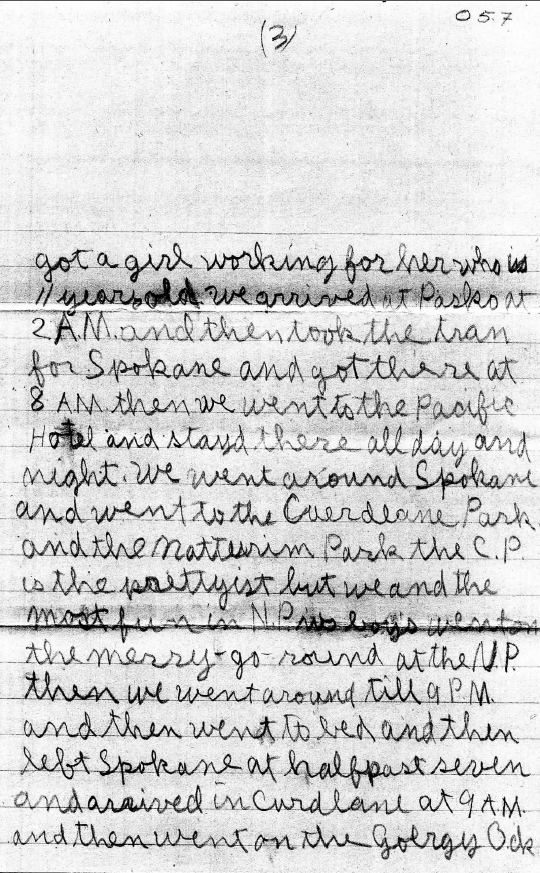 057
(3)
got a girl working for her who is
11 years old. we arrived at Pasko at
2 A.M. and then took the tran
for Spokane and got there at
8 AM. then we went to the Pacific
Hotel and stayd there all day and
night. We went around Spokane
and went to the Cuerdlane Park.
and the Natteurim Park the C.P.
is the prettyist but we and the
most fun in N.P. us boys went on
the merry-go-round at the N.P.
then we went around till 9 P.M.
and then went to bed and then
left Spokane at half past seven
and arrived in Curdlane at 9 AM.
and then went on the Golrgy Ock